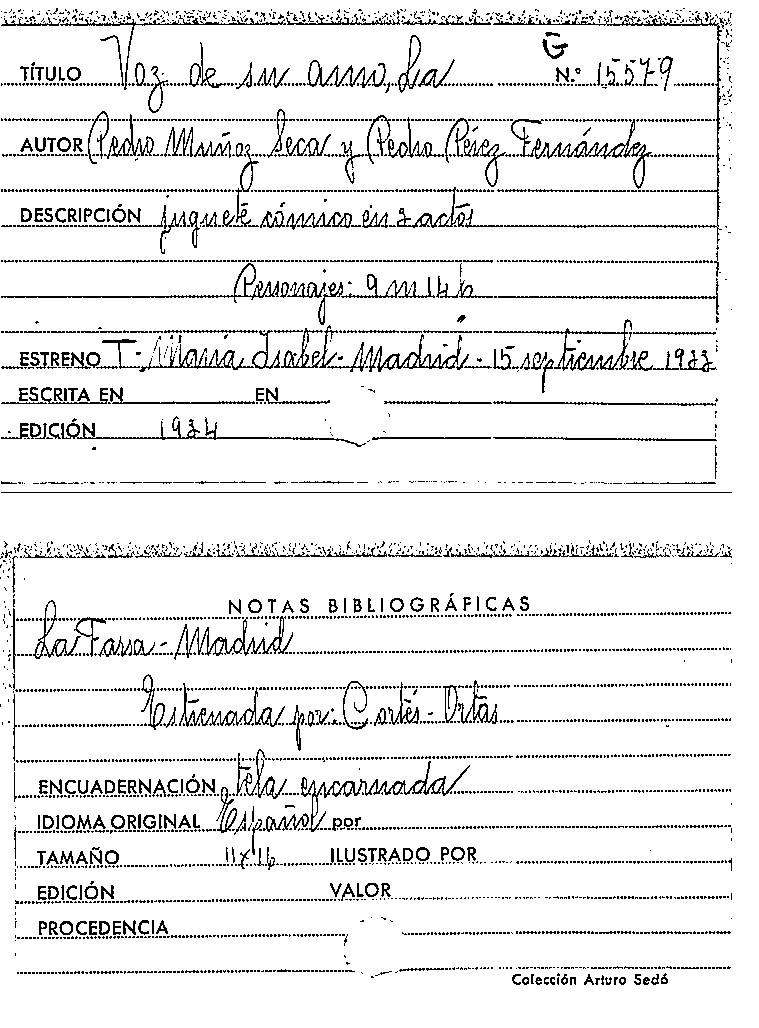 G
TÍTULO Voz de su amo, La N.º 15579
AUTOR Pedro Muñoz Seca y Pedro Pérez Fernández
DESCRIPCIÓN juguete cómico en 3 actos
Personajes: 9 m 14 h
ESTRENO T. María Isabel - Madrid - 15 septiembre 1933
ESCRITA EN EN
EDICIÓN 1934
NOTAS BIBLIOGRÁFICAS
La Farsa - Madrid
Estrenada por: Cortés - Ortas
ENCUADERNACIÓN tela encarnada
IDIOMA ORIGINAL Español por
TAMAÑO 11x16 ILUSTRADO POR
EDICIÓN VALOR
PROCEDENCIA
Colección Arturo Sedó